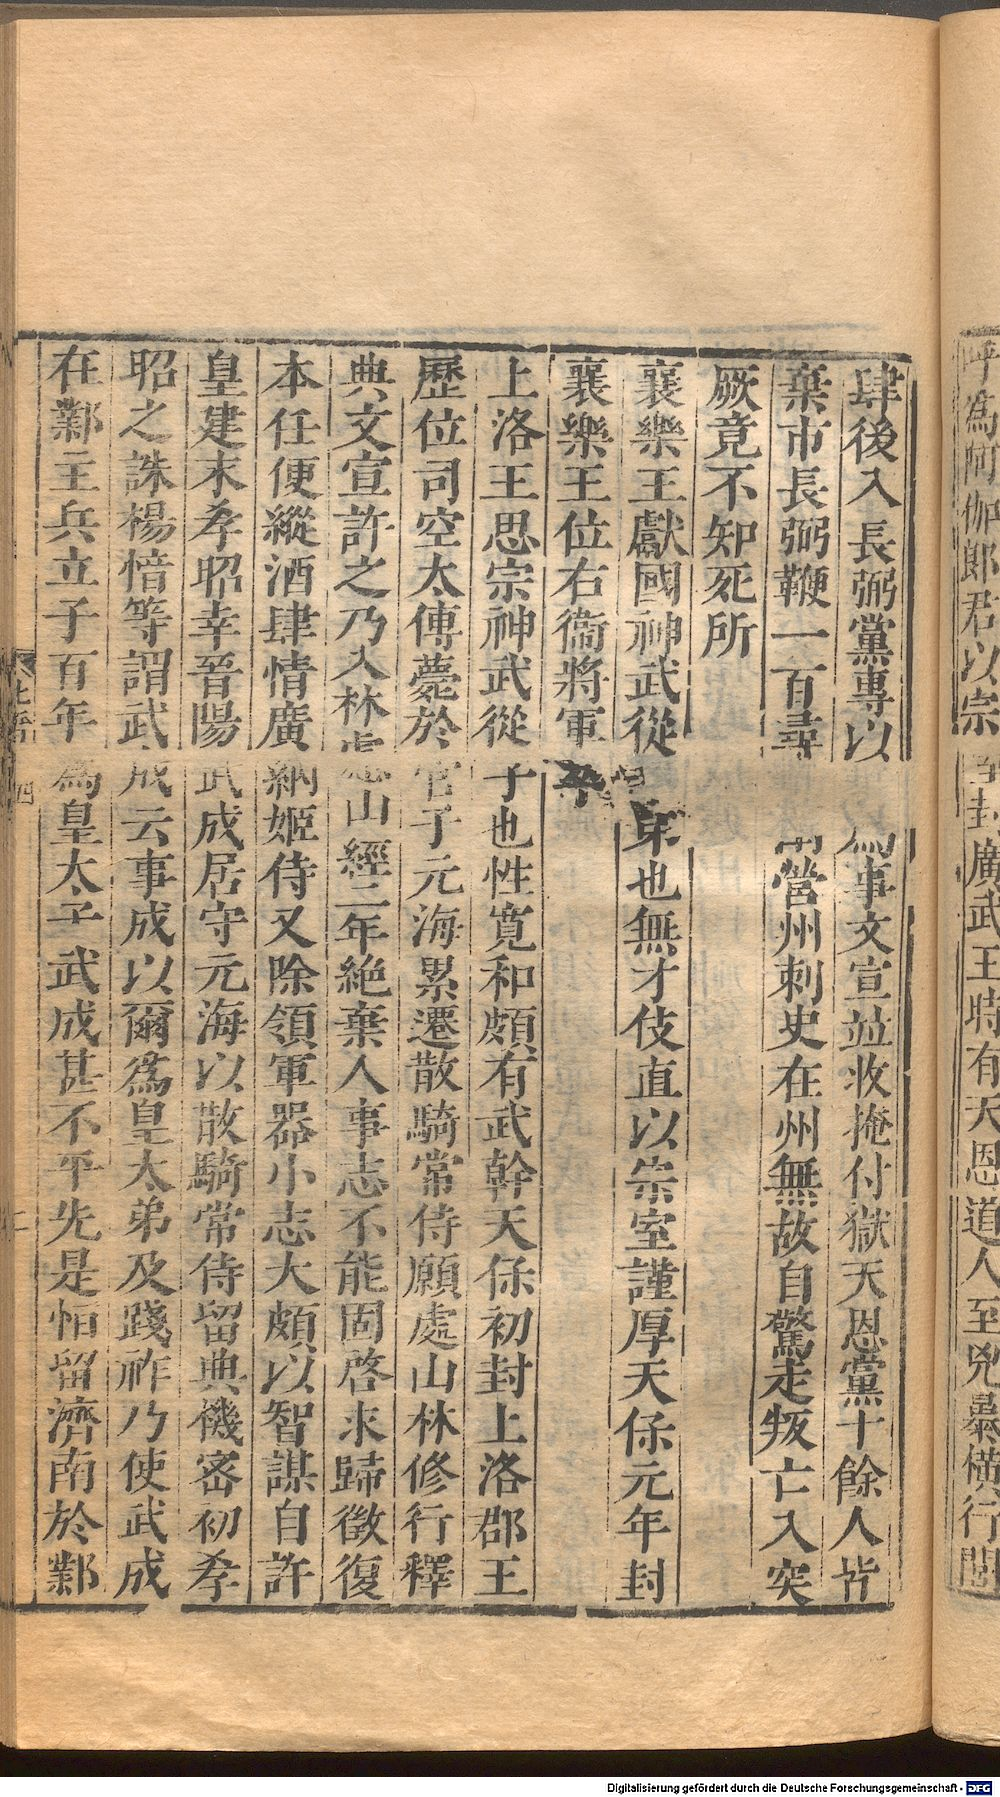 呼為阿伽郎君以宗室封廣武王時有天恩道人至兇暴橫行閭
肆後入長弼黨專以為事文宣並收掩付獄天恩黨十餘人皆
棄市長弼鞭一百尋為營州刺史在州無故自驚走叛亡入突
厥竟不知死所
襄樂王獻國神武從弟也無才伎直以宗室謹厚天保元年封
襄樂王位右衞將軍卒
上洛王思宗神武從子也性寬和頗有武幹天保初封上洛郡王
歷位司空太傅薨於官子元海累遷散騎常侍願處山林修行釋
典文宣許之乃入林慮山經二年絶棄人事志不能固啓求歸徵復
本任便縱酒肆情廣納姬侍又除領軍器小志大頗以智謀自許
皇建末孝昭幸晉陽武成居守元海以散騎常侍留典機密初孝
昭之誅楊愔等謂武成云事成以爾爲皇太弟及踐祚乃使武成
在鄴主兵立子百年為皇太子武成甚不平先是恒留濟南於鄴
Digitalisierung gefördert durch die Deutsche Forschungsgemeinschaft - DFG